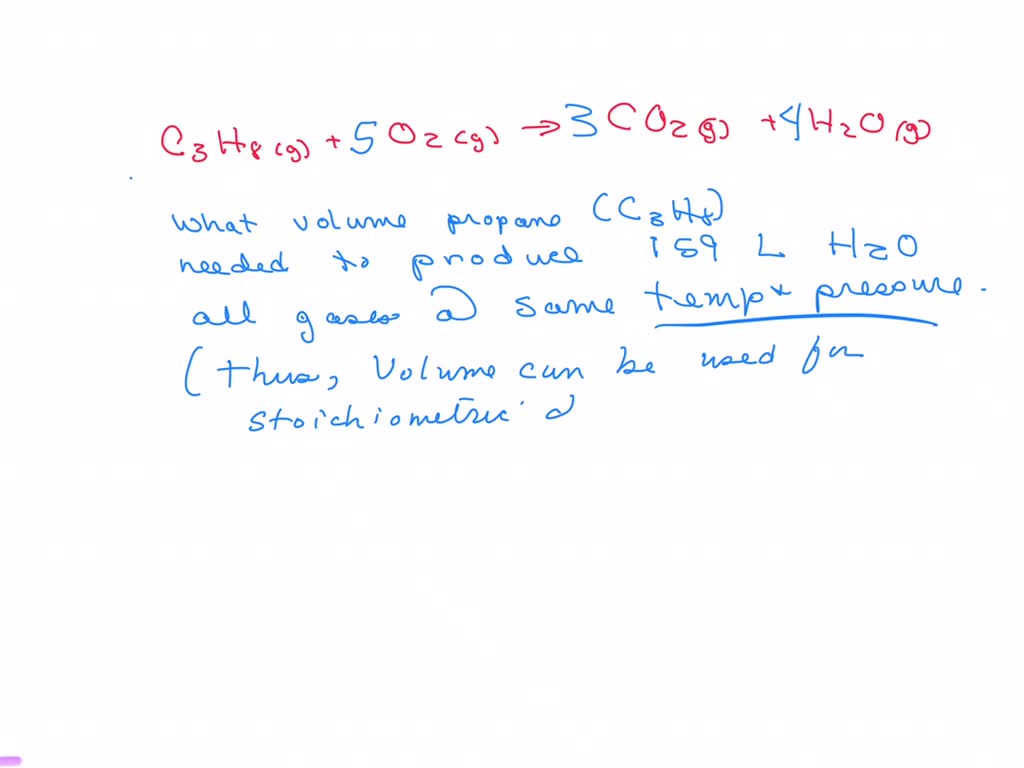 C3H8(g) + 5O2(g) → 3CO2(g) + 4H2O(g)
what volume propane (C3H8)
needed to produce 159 L H2O
all gases @ same temp & pressure.
(thus, Volume can be used for
stoichiometric